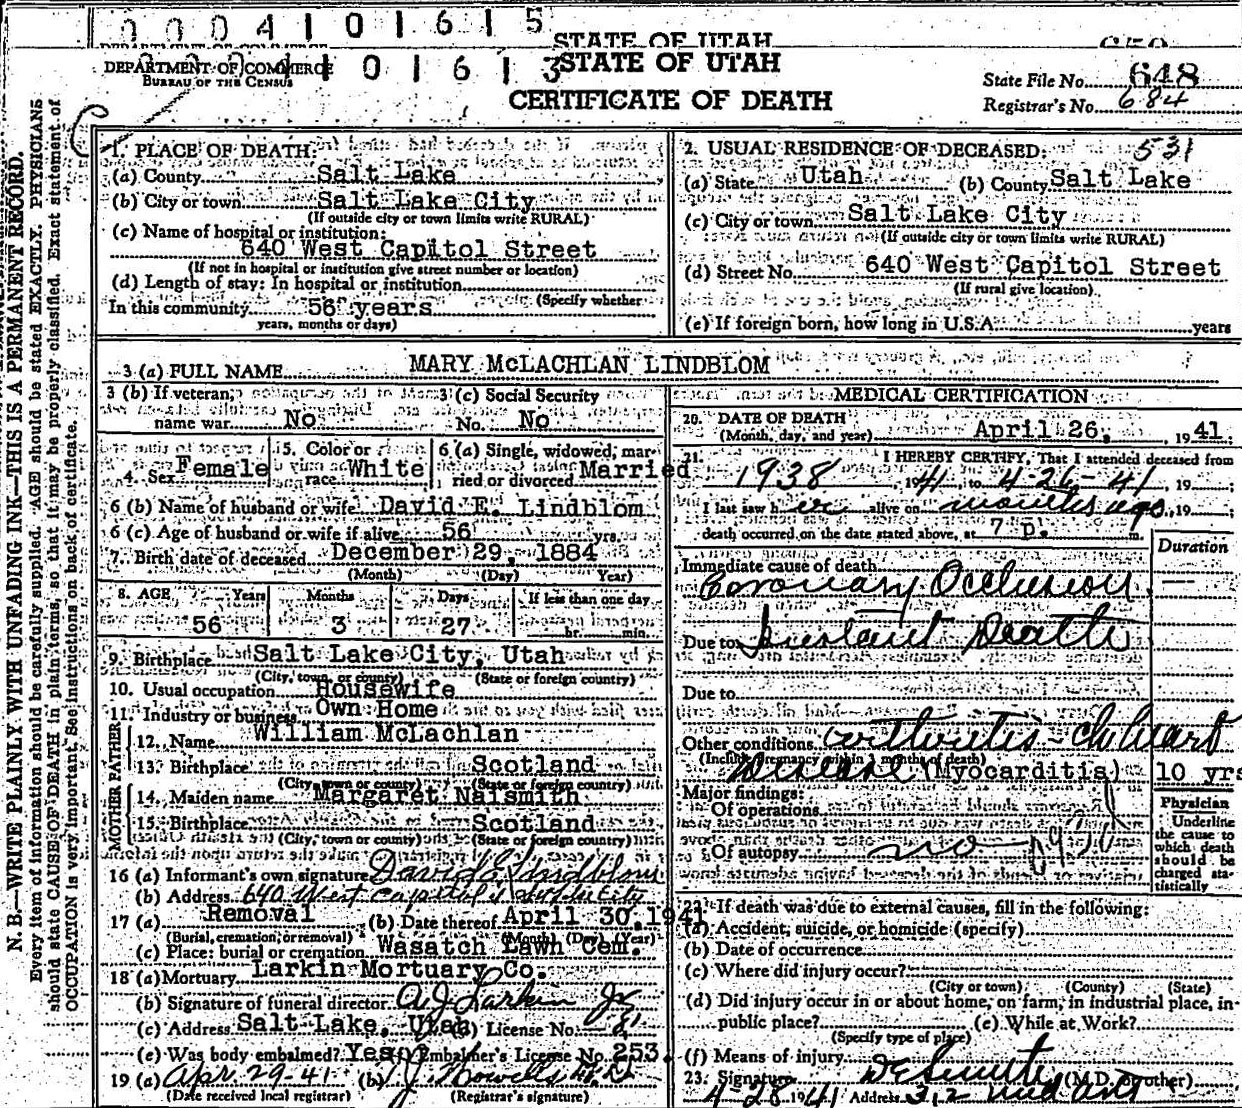 0 0 0 4 1 0 1 6 1 5
STATE OF UTAH
DEPARTMENT OF COMMERCE 1 0 1 6 1 3 STATE OF UTAH
BUREAU OF THE CENSUS
CERTIFICATE OF DEATH
State File No. 648
Registrar's No. 684
N. B.—WRITE PLAINLY WITH UNFADING INK—THIS IS A PERMANENT RECORD.
Every item of information should be carefully supplied. AGE should be stated EXACTLY. PHYSICIANS
should state CAUSE OF DEATH in plain terms, so that it may be properly classified. Exact statement of
OCCUPATION is very important. See instructions on back of certificate.
1. PLACE OF DEATH:
(a) County Salt Lake
(b) City or town Salt Lake City
(If outside city or town limits write RURAL)
(c) Name of hospital or institution:
640 West Capitol Street
(If not in hospital or institution give street number or location)
(d) Length of stay: In hospital or institution
(Specify whether
In this community 56 years
years, months or days)
2. USUAL RESIDENCE OF DECEASED: 531
(a) State Utah (b) County Salt Lake
(c) City or town Salt Lake City
(If outside city or town limits write RURAL)
(d) Street No. 640 West Capitol Street
(If rural give location)
(e) If foreign born, how long in U.S.A. years
3 (a) FULL NAME MARY McLACHLAN LINDBLOM
3 (b) If veteran, name war No
3 (c) Social Security No. No
4. Sex Female
5. Color or race White
6 (a) Single, widowed, married or divorced Married
6 (b) Name of husband or wife David E. Lindblom
6 (c) Age of husband or wife if alive 56 yrs.
7. Birth date of deceased December 29, 1884
(Month) (Day) Year)
8. AGE Years Months Days If less than one day
56 3 27 hr. min.
9. Birthplace Salt Lake City, Utah
(City, town, or county) (State or foreign country)
10. Usual occupation Housewife
11. Industry or business Own Home
FATHER
12. Name William McLachlan
13. Birthplace Scotland
(City, town or county) (State or foreign country)
MOTHER
14. Maiden name Margaret Naismith
15. Birthplace Scotland
(City, town or county) (State or foreign country)
16 (a) Informant's own signature David E Lindblom
(b) Address 640 West Capitol St Salt Lake City
17 (a) Removal (b) Date thereof April 30, 1941
(Burial, cremation, or removal) (Month) (Day) (Year)
(c) Place: burial or cremation Wasatch Lawn Cem.
18 (a) Mortuary Larkin Mortuary Co.
(b) Signature of funeral director A J Larkin Jr
(c) Address Salt Lake, Utah (d) License No. 81
(e) Was body embalmed? Yes (f) Embalmer's License No. 253.
19 (a) Apr. 29-41 (b)
(Date received local registrar) (Registrar's signature)
MEDICAL CERTIFICATION
20. DATE OF DEATH
(Month, day, and year) April 26, 1941
21. I HEREBY CERTIFY, That I attended deceased from
1938, 1941, to 4-26-41, 19 ;
I last saw her alive on months ago, 19 ;
death occurred on the date stated above, at 7 p. m.
Duration
Immediate cause of death
Coronary Occlusion —
Due to Instant Death
Due to
Other conditions Arthritis - Ch heart
(Include pregnancy within 3 months of death)
Disease (Myocarditis) 10 yrs
Major findings:
Of operations
Of autopsy no
Physician
Underline
the cause to
which death
should be
charged statistically
22. If death was due to external causes, fill in the following:
(a) Accident, suicide, or homicide (specify)
(b) Date of occurrence
(c) Where did injury occur?
(City or town) (County) (State)
(d) Did injury occur in or about home, on farm, in industrial place, in
public place? (e) While at Work?
(Specify type of place)
(f) Means of injury
23. Signature (M.D. or other)
4-28 1941 Address 312 Med Arts